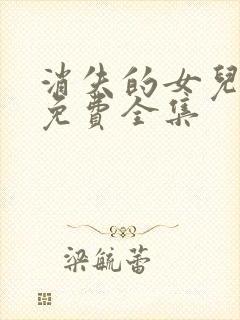 消失的女兒
免費全集
梁毓蕾